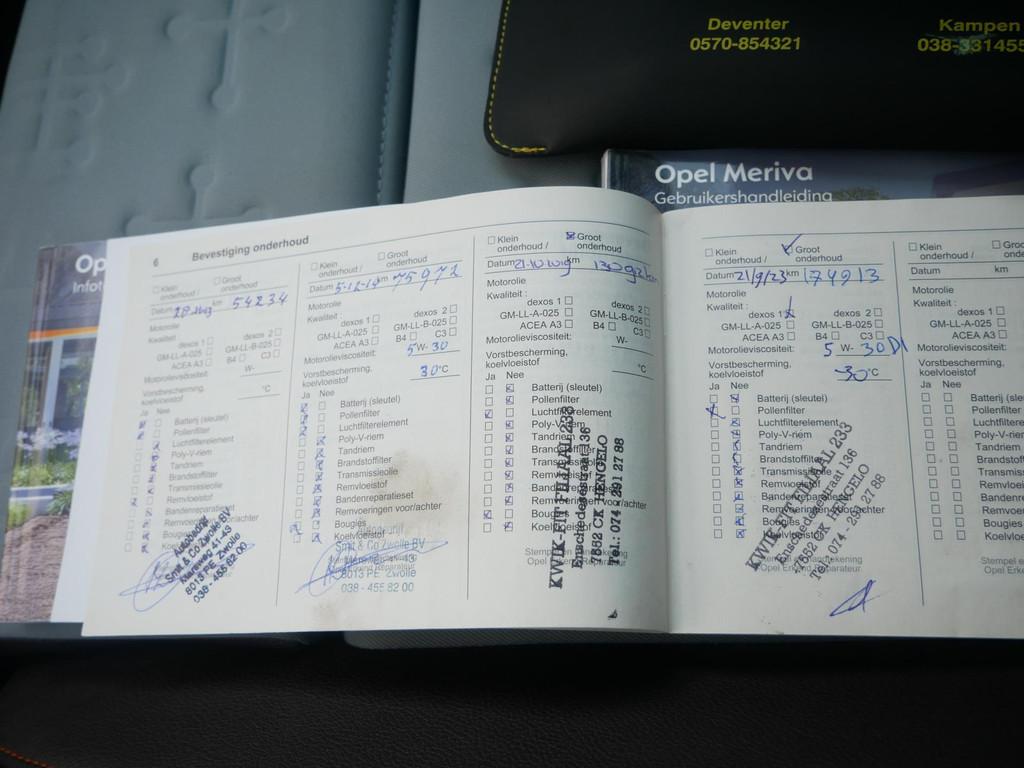 Deventer
0570-854321
Kampen
038-331455
Opel Meriva
Gebruikershandleiding
Op
Infot
6 Bevestiging onderhoud
Klein onderhoud /
Groot onderhoud
Datum km 54234
Motorolie
Kwaliteit :
dexos 1 dexos 2
GM-LL-A-025 GM-LL-B-025
ACEA A3 B4 C3
Motorolieviscositeit: W-
Vorstbescherming,
koelvloeistof °C
Ja Nee
Batterij (sleutel)
Pollenfilter
Luchtfilterelement
Poly-V-riem
Tandriem
Brandstoffilter
Transmissieolie
Remvloeistof
Bandenreparatieset
Remvoeringen voor/achter
Bougies
Autobedrijf
Smit & Co Zwolle BV
8013 PE Zwolle
038 - 455 82 00
Klein onderhoud /
Groot onderhoud
Datum 5-12-14 km 75972
Motorolie
Kwaliteit :
dexos 1 dexos 2
GM-LL-A-025 GM-LL-B-025
ACEA A3 B4 C3
Motorolieviscositeit: 5 W- 30
Vorstbescherming,
koelvloeistof 30 °C
Ja Nee
Batterij (sleutel)
Pollenfilter
Luchtfilterelement
Poly-V-riem
Tandriem
Brandstoffilter
Transmissieolie
Remvloeistof
Bandenreparatieset
Remvoeringen voor/achter
Bougies
Koelvloeistof
Smit & Co Zwolle BV
8013 PE Zwolle
038 - 455 82 00
Klein onderhoud /
Groot onderhoud
Datum km
Motorolie
Kwaliteit :
dexos 1 dexos 2
GM-LL-A-025 GM-LL-B-025
ACEA A3 B4 C3
Motorolieviscositeit: W-
Vorstbescherming,
koelvloeistof °C
Ja Nee
Batterij (sleutel)
Pollenfilter
Luchtfilterelement
Poly-V-riem
Tandriem
Brandstoffilter
Transmissieolie
Remvloeistof
Bandenreparatieset
Remvoeringen voor/achter
Bougies
Koelvloeistof
KWIK-FIT FILIAAL 233
Enschedesestraat 136
7552 CK HENGELO
Tel.: 074 - 291 27 88
Klein onderhoud /
Groot onderhoud
Datum 21/9/23 km 174913
Motorolie
Kwaliteit :
dexos 1 dexos 2
GM-LL-A-025 GM-LL-B-025
ACEA A3 B4 C3
Motorolieviscositeit: 5 W- 30 D1
Vorstbescherming,
koelvloeistof -30 °C
Ja Nee
Batterij (sleutel)
Pollenfilter
Luchtfilterelement
Poly-V-riem
Tandriem
Brandstoffilter
Transmissieolie
Remvloeistof
Bandenreparatieset
Remvoeringen voor/achter
Bougies
Koelvloeistof
KWIK-FIT FILIAAL 233
Enschedesestraat 136
7552 CK HENGELO
Tel.: 074 - 291 27 88
Klein onderhoud /
Groo
onde
Datum km
Motorolie
Kwaliteit :
dexos 1
GM-LL-A-025 GM-
ACEA A3 B4
Motorolieviscositeit:
Vorstbescherming,
koelvloeistof
Ja Nee
Batterij (sle
Pollenfilter
Luchtfiltere
Poly-V-riem
Tandriem
Brandstoff
Transmissi
Remvloeis
Bandenrep
Remvoerin
Bougies
Koelvloei
Stempel e
Opel Erke